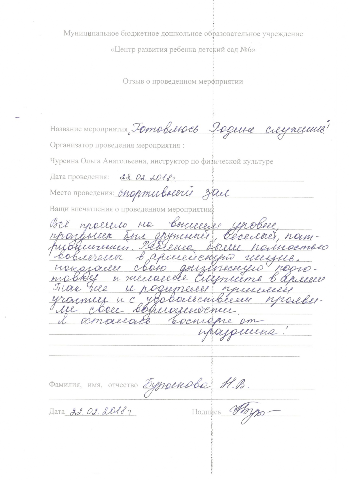 Муниципальное бюджетное дошкольное образовательное учреждение
«Центр развития ребенка детский сад №6»
Отзыв о проведенном мероприятии
Название мероприятия „Готовлюсь Родине служить"
Организатор проведения мероприятия :
Чурсина Ольга Анатольевна, инструктор по физической культуре
Дата проведения: 22.02.2018г
Место проведения: спортивный зал
Ваши впечатления о проведенном мероприятии:
Всё прошло на высшем уровне,
праздник был дружный, веселый, пат-
риотичный. Ребята были полностью
вовлечены в армейскую жизнь,
показали свою физическую подго-
товку и желание служить в армии
Так же и родители приняли
участие и с удовольствием прояви-
ли свои возможности.
Я осталась в восторге от
праздника!
Фамилия, имя, отчество Н.В.
Дата 22.02.2018г Подпись